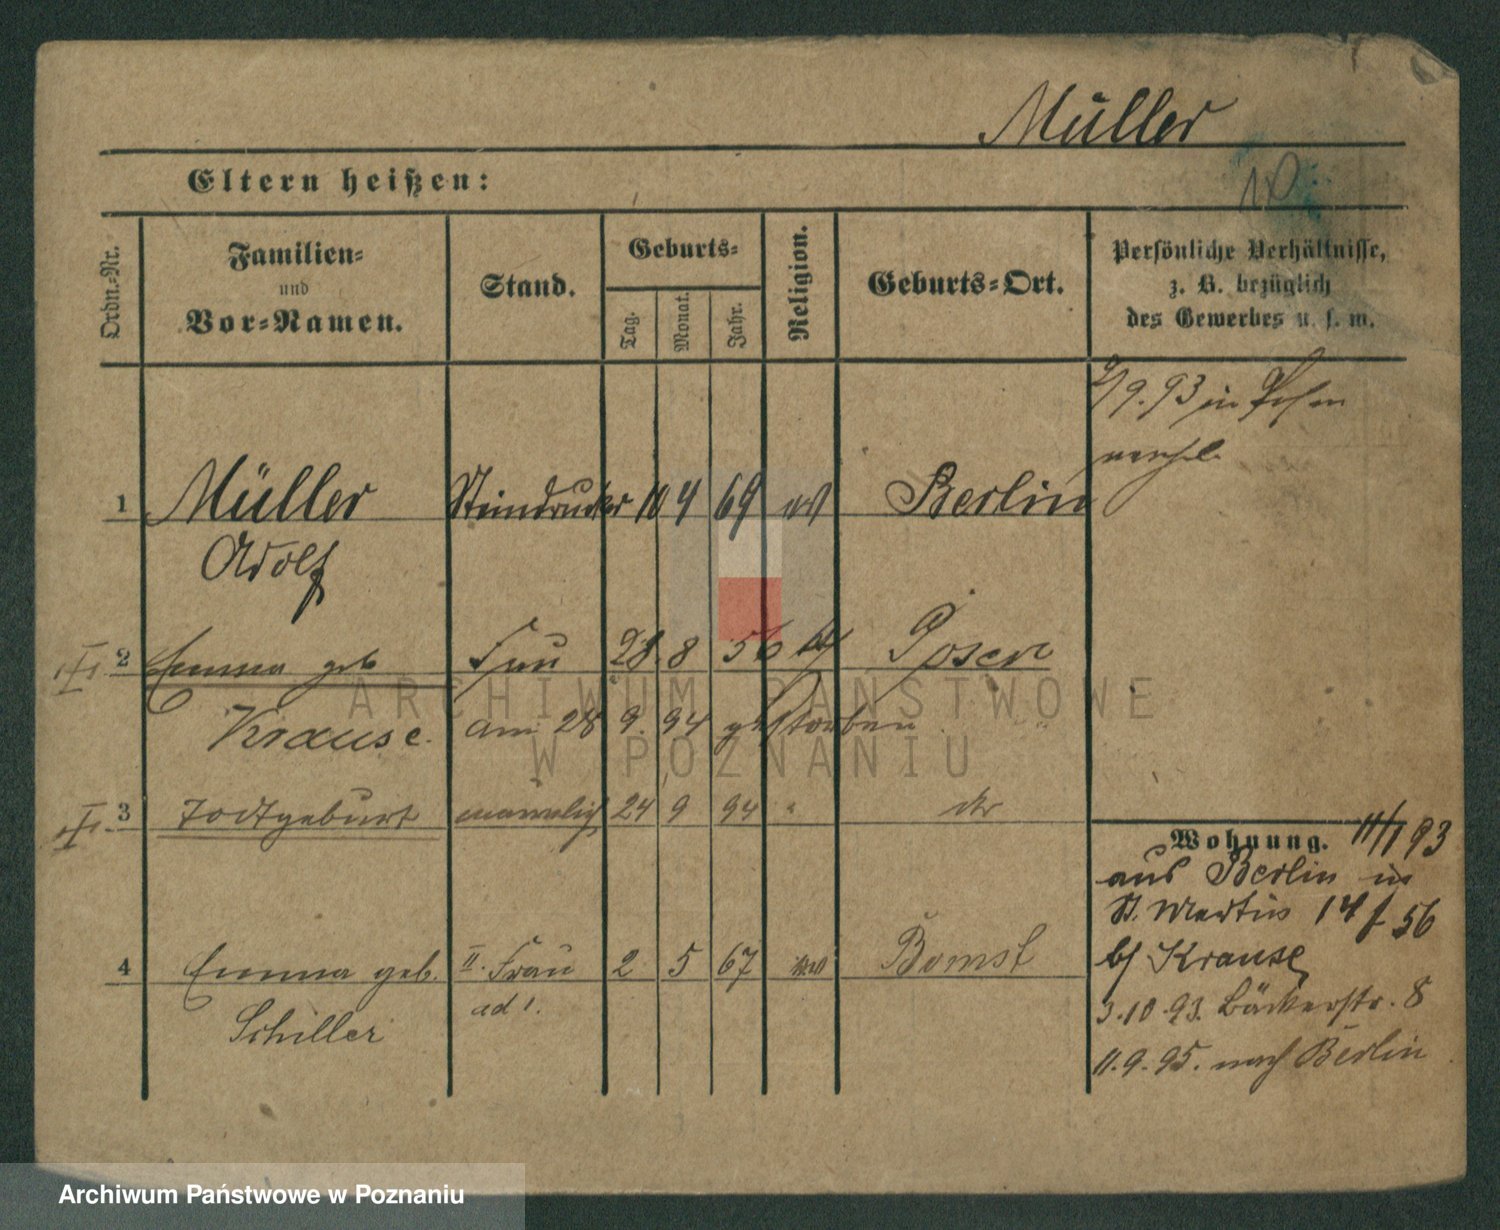 Müller
Eltern heißen:
Ordn.-Nr.
Familien-
und
Vor-Namen.
Stand.
Geburts-
Tag.
Monat.
Jahr.
Religion.
Geburts-Ort.
Persönliche Verhältnisse,
z. B. bezüglich
des Gewerbes u. s. w.
9.93 in Posen
1 Müller Steindrucker 10 4 69 ev Berlin
Adolf
2 Emma geb Frau 28. 8 56 Posen
Krause. am 28 9. 94 gestorben
3 Todtgeburt männlich 24 9 94 " dto
Wohnung. 11/1 93
aus Berlin in
St. Martin 14 f 56
b/ Krause
4 Emma geb. II. Frau 2 5 67 ev Bomst
Schiller ad 1.
3.10.93. Bäckerstr. 8
11.9.95. nach Berlin
ARCHIWUM PAŃSTWOWE
W POZNANIU
Archiwum Państwowe w Poznaniu